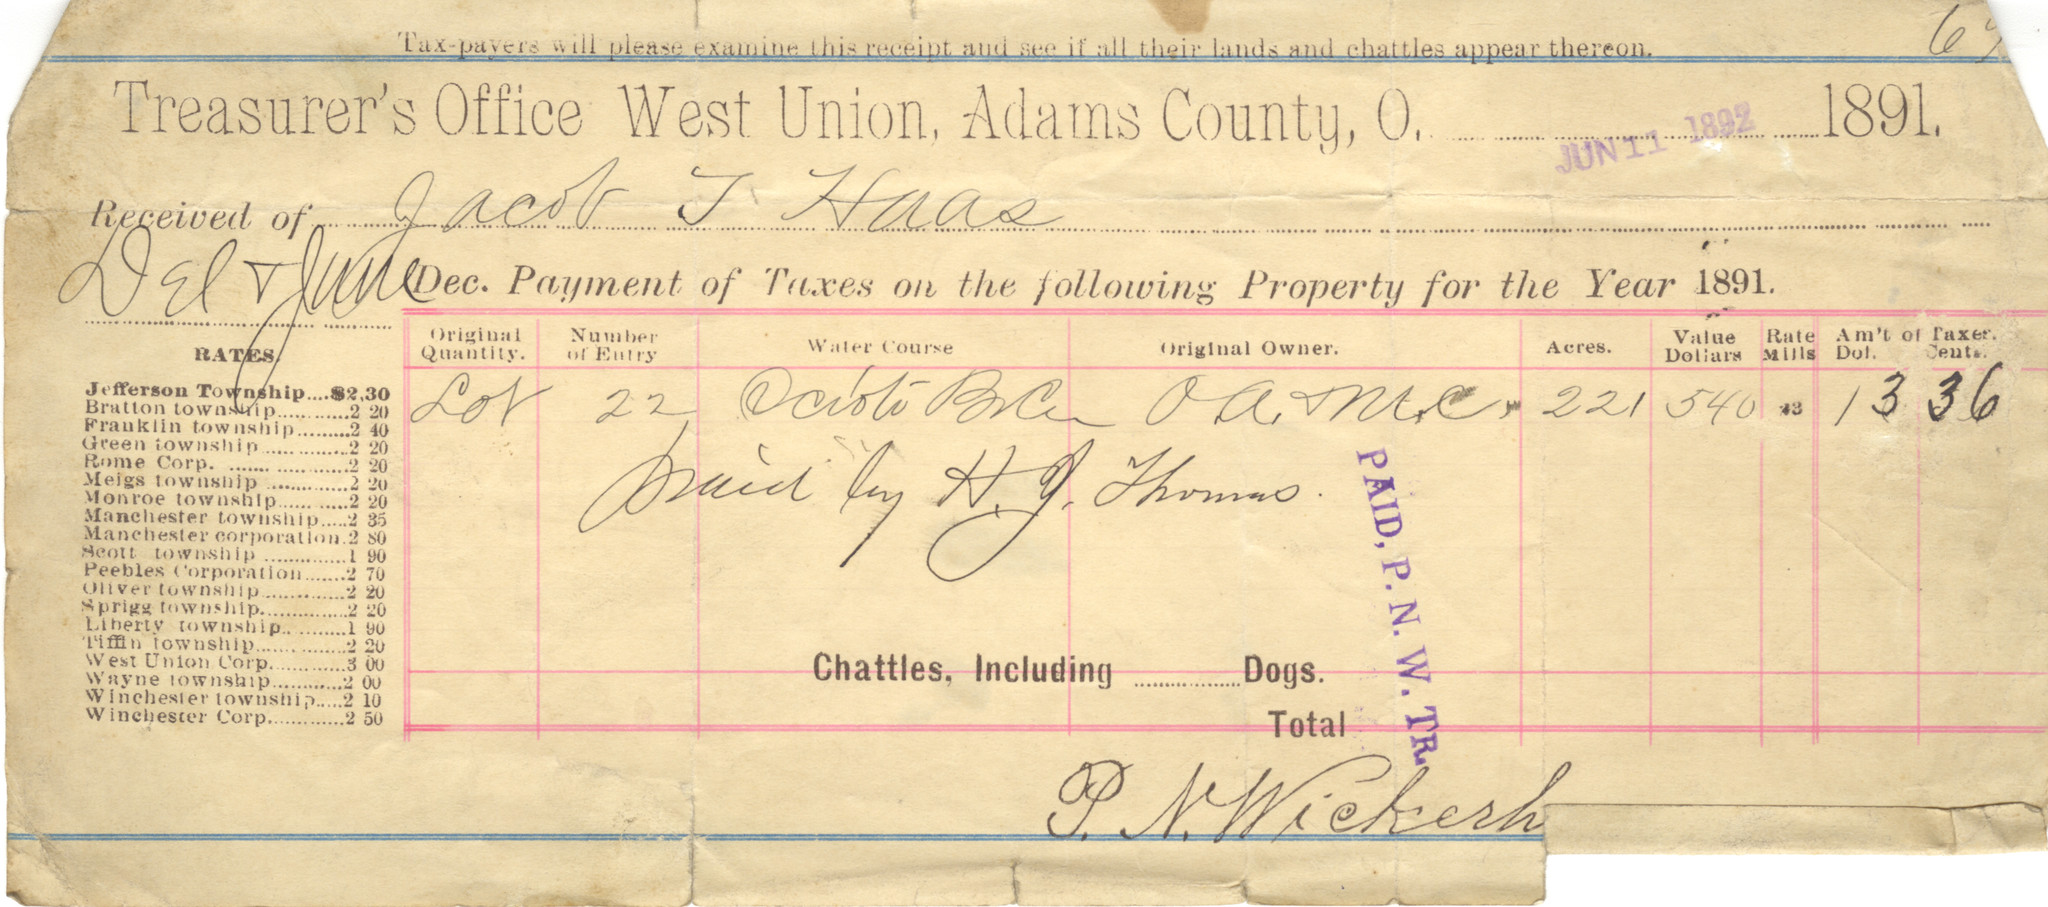 Tax-payers will please examine this receipt and see if all their lands and chattles appear thereon.
Treasurer's Office West Union, Adams County, O. JUN 11 1892 1891.
Received of Jacob T Haas
Del & June Dec. Payment of Taxes on the following Property for the Year 1891.
Original Quantity. Number of Entry Water Course Original Owner. Acres. Value Dollars Rate Mills Am't of Taxes. Dol. Cents.
Lot 22 Scioto O A. & M. C. 221 540 13 36
paid by H. J. Thomas.
RATES.
Jefferson Township....$2.30
Bratton township..........2 20
Franklin township.........2 40
Green township.............2 20
Rome Corp. ....................2 20
Meigs township ..............2 20
Monroe township............2 20
Manchester township....2 35
Manchester corporation.2 80
Scott township ..............1 90
Peebles Corporation.......2 70
Oliver township..............2 20
Sprigg township.............2 20
Liberty township............1 90
Tiffin township...............2 20
West Union Corp............3 00
Wayne township.............2 00
Winchester township......2 10
Winchester Corp.............2 50
PAID, P. N. W. TR.
Chattles, Including ................Dogs.
Total
P. N. Wickerh